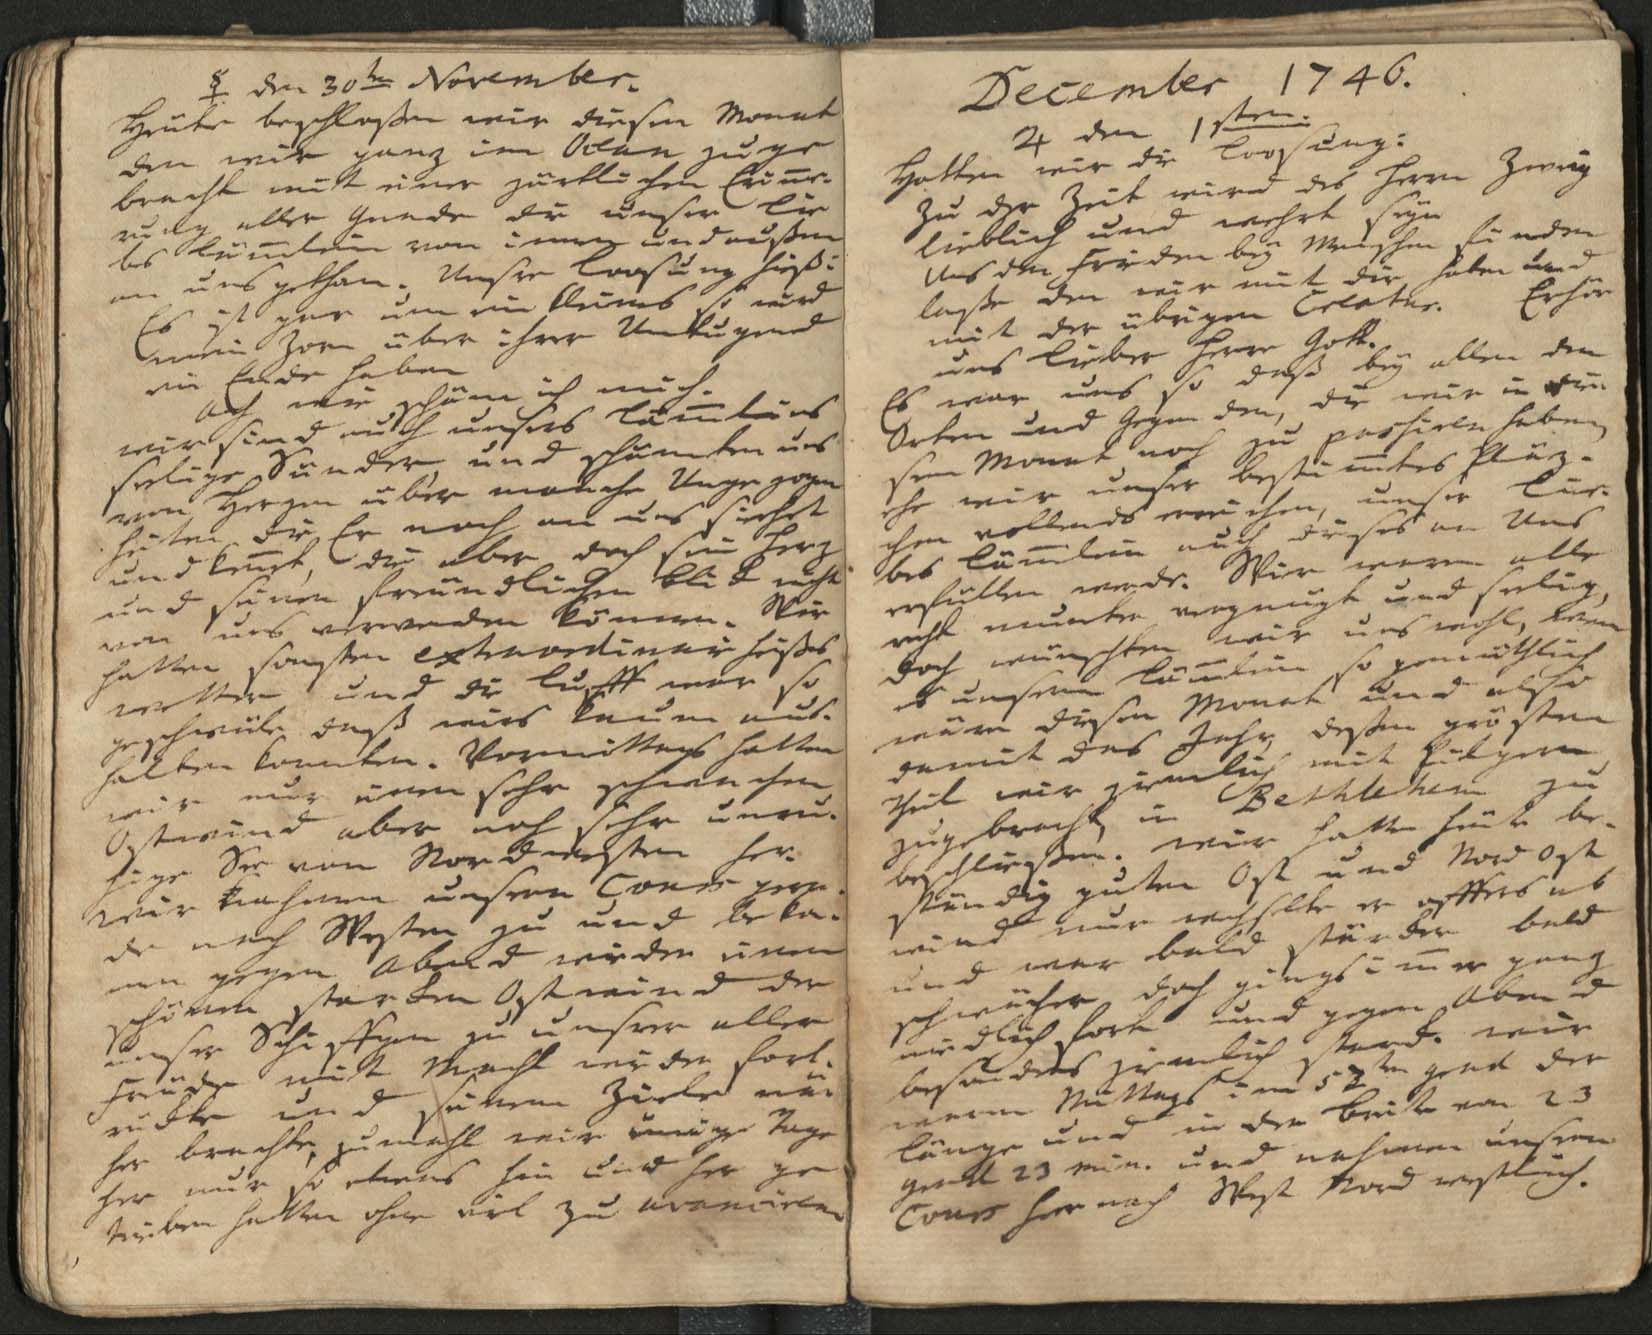 ☿ den 30ten November.
Heute beschloßen wir diesen Monat
den wir ganz im Ocean zuge
bracht mit einer zärtlichen Erinne-
rung aller Gnade die unser lie
bes Lämmlein von innen und außen
an uns gethan. Unsre Loosung hieß:
Es ist gar um ein kleines so wird
mein Zorn über ihrer Untugend
ein Ende haben
Ach wie schäm ich mich.
wir sind auch unsers Lämmleins
selige Sünder und schämten uns
von Herzen über manche Ungezogen
heiten die Er noch an uns siehet
und kennt, die aber doch sein Herz
und seinen freundlichen Blick nicht
von uns verwenden können. Wir
hatten sonsten extraordinair heißes
wetter und die Lufft war so
geschwüle daß wirs kaum aus-
halten konnten. Vormittags hatten
wir nur einen sehr schwachen
Ostwind aber noch sehr unru-
hige See von Nordwesten her.
wir nahmen unsern Cours gera-
de nach Westen zu und beka-
men gegen Abend wieder einen
schönen starken Ostwind der
unser Schiffgen zu unsrer aller
Freude mit Macht wieder fort-
rückte und seinem Ziele nä
her brachte, zumahl wir einige Tage
her nur so etwas hin und her ge
trieben hatten ohne viel zu avanciren
December 1746.
♃ den 1sten.
Hatten wir die Loosung:
Zu der Zeit wird des Herrn Zweig
lieblich und wehrt seyn
Uns den Frieden bey Menschen finden
laße den wir mit dir haben und
mit der übrigen Creatur. Erhör
uns lieber Herre Gott.
Es war uns so daß bey allen den
Orten und Gegenden, die wir in die-
sem Monat noch zu passiren haben,
ehe wir unser bestimmtes Pläz-
chen vollends erreichen, unser lie-
bes Lämmlein auch dieses an Uns
erfüllen werde. Wir waren alle
recht munter vergnügt und selig,
doch wünschten wir uns wohl, wenn
es unserm Lämmlein so gemüthlich
wäre diesen Monat und also
damit das Jahr, deßen grösten
Theil wir ziemlich mit Pilgern
zugebracht in Bethlehem zu
beschließen. wir hatten heute be-
ständig guten Ost und Nord Ost
wind nur wechselte er öffters ab
und war bald stärcker bald
schwächer doch giengs immer ganz
niedlich fort und gegen Abend
besonders ziemlich starck. wir
waren Mittags im 57ten grad der
Länge und in der Breite von 23
grad 23 min. und nahmen unsern
Cours hernach West Nord westlich.